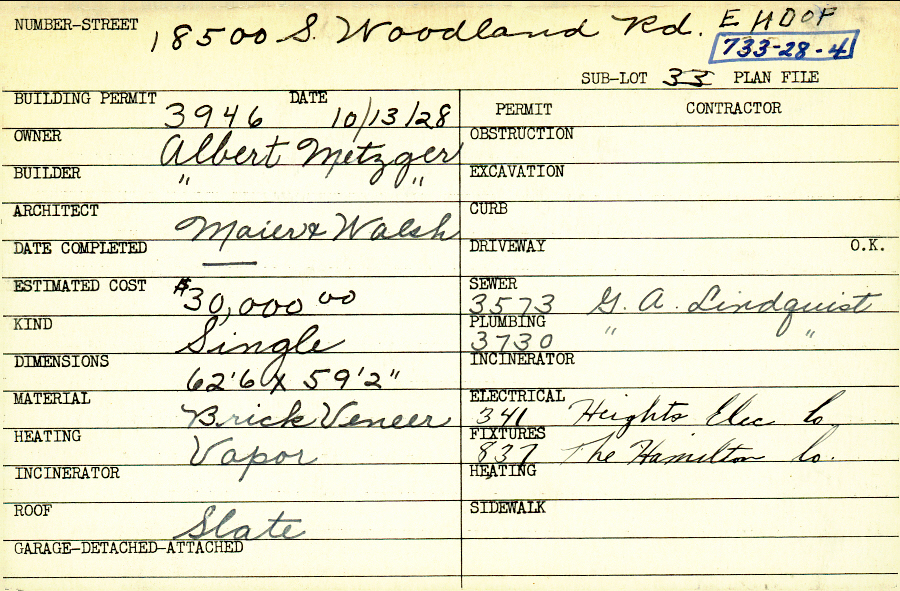 NUMBER-STREET 18500 S. Woodland Rd. E H D O F
733-28-4
SUB-LOT 33 PLAN FILE
BUILDING PERMIT 3946 DATE 10/13/28
OWNER Albert Metzger
BUILDER " "
ARCHITECT Maier & Walsh
DATE COMPLETED —
ESTIMATED COST $30,000 00
KIND Single
DIMENSIONS 62'6 x 59'2"
MATERIAL Brick Veneer
HEATING Vapor
INCINERATOR
ROOF Slate
GARAGE-DETACHED-ATTACHED
PERMIT CONTRACTOR
OBSTRUCTION
EXCAVATION
CURB
DRIVEWAY O.K.
SEWER 3573 G. A. Lindquist
PLUMBING 3730 " "
INCINERATOR
ELECTRICAL 341 Heights Elec Co
FIXTURES 837 The Hamilton Co.
HEATING
SIDEWALK